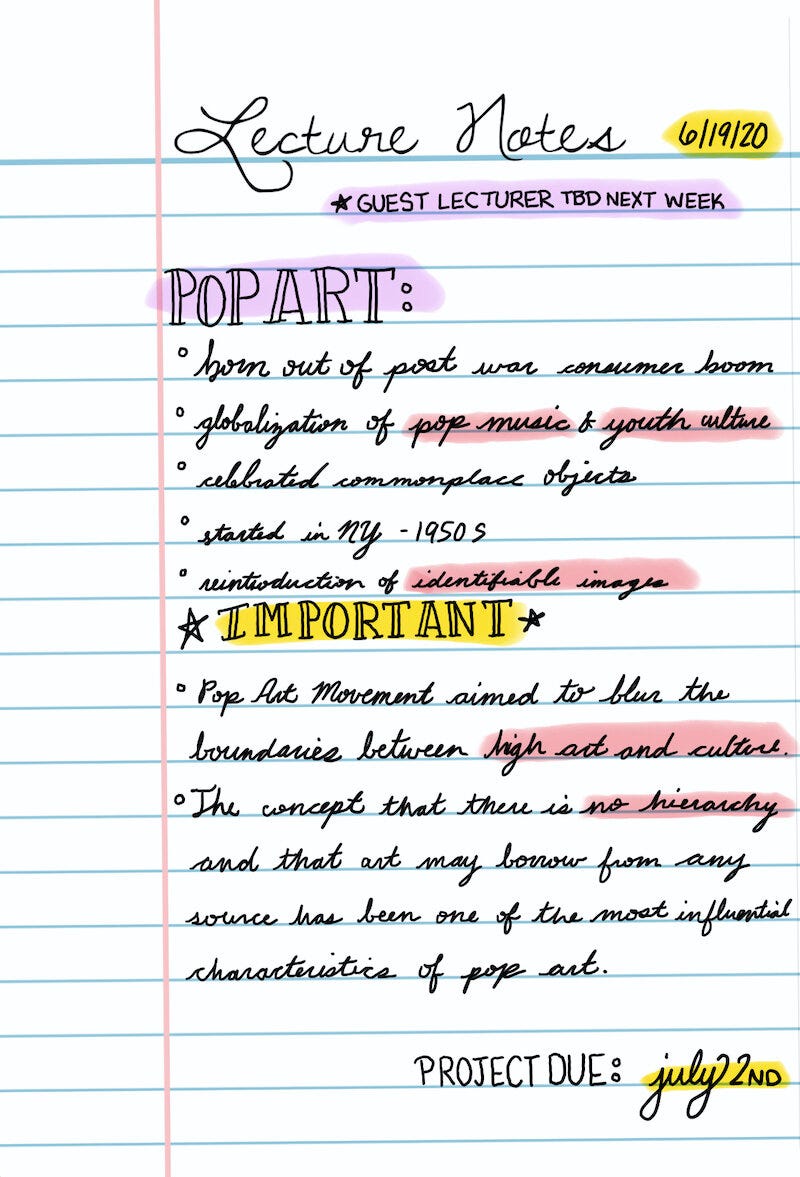 Lecture Notes 6/19/20
☆ GUEST LECTURER TBD NEXT WEEK
POP ART:
° born out of post war consumer boom
° globalization of pop music & youth culture
° celebrated commonplace objects
° started in NY - 1950s
° reintroduction of identifiable images
☆ IMPORTANT ☆
° Pop Art Movement aimed to blur the
boundaries between high art and culture.
° The concept that there is no hierarchy
and that art may borrow from any
source has been one of the most influential
characteristics of pop art.
PROJECT DUE: july 22ND